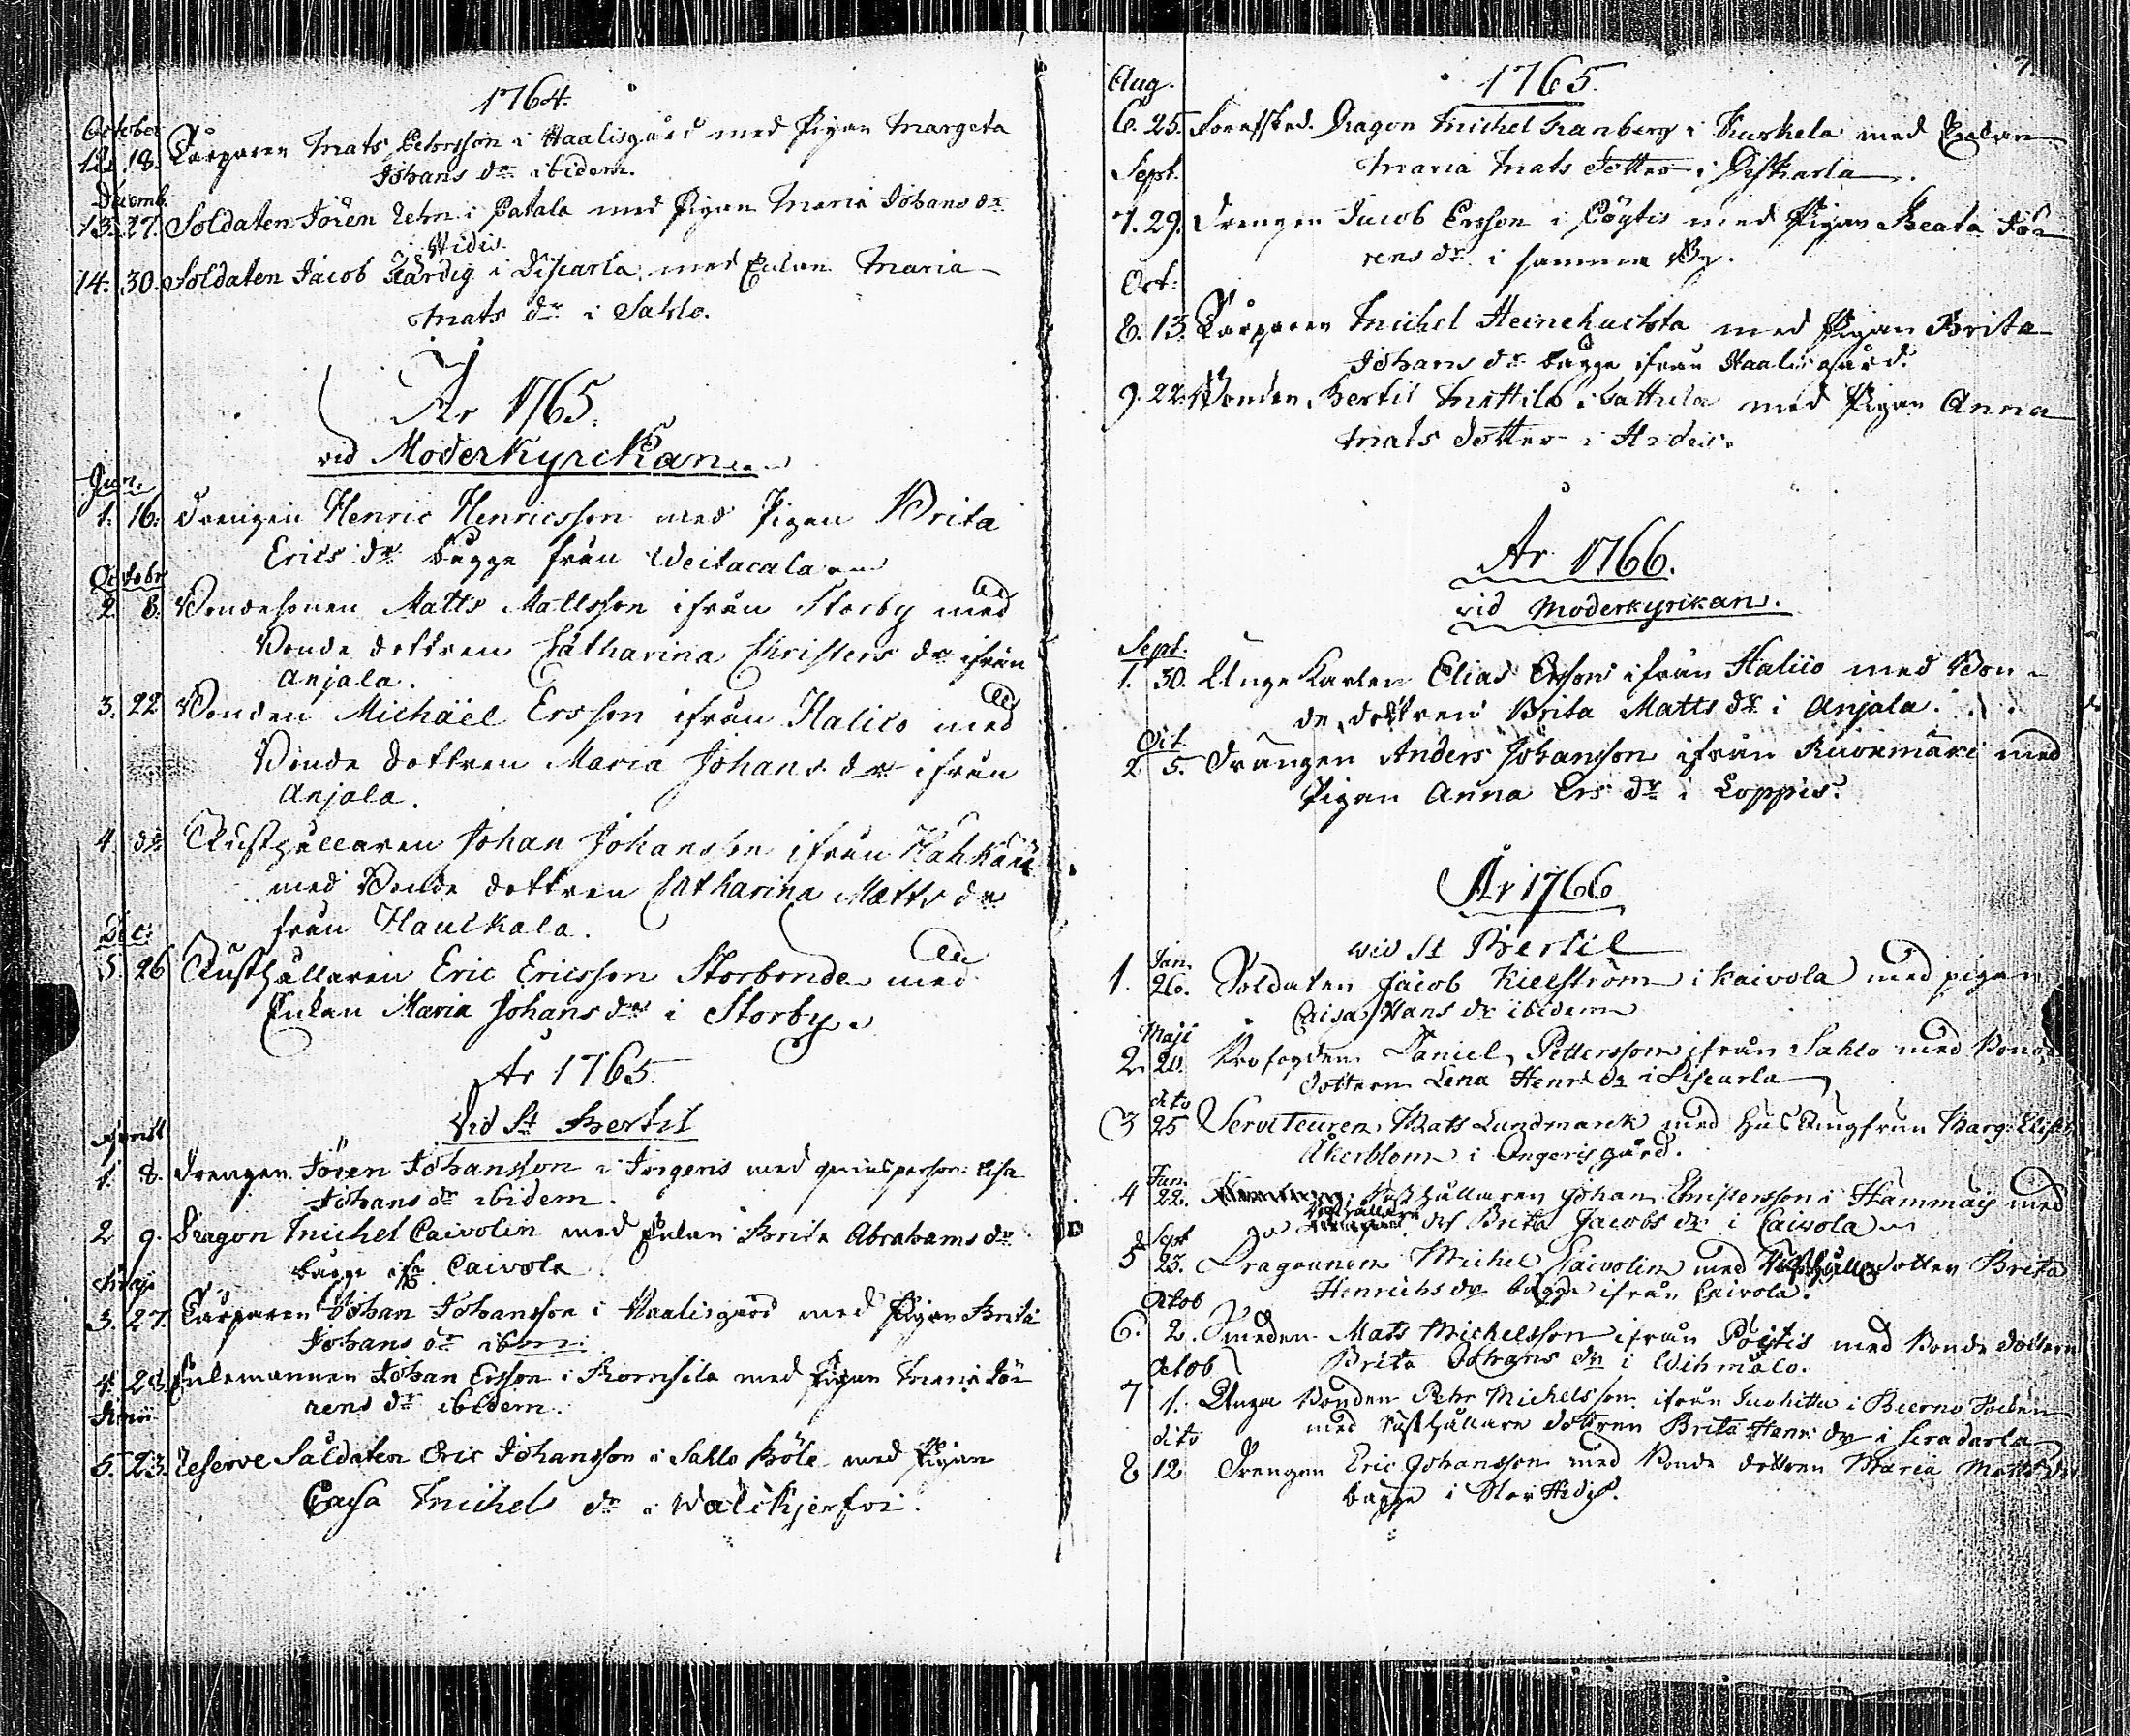 1764.
October
12. 18. Torparen Mats Pehrsson i Haalisgård med Pigan Margeta
Johans dr ibidem.
Decemb.
13. 27. Soldaten Jören Zehn i Patala med Pigan Maria Johans dr
i Hidis.
14. 30. Soldaten Jacob Hardig i Discarla med Enkan Maria
Mats dr i Sahlo.
År 1765.
vid Moderkyrckan
Jun.
1. 16. Drengen Henric Henricsson med Pigan Brita
Erics dr bägge från Weitacala
Octobr
2. 8. Bondesonen Matts Mattsson ifrån Storby med
Bonde dottren Catharina Christers dr ifrån
Anjala.
3. 22 Bonden Michäel Ersson ifrån Halico med
Bonde dottren Maria Johans dr ifrån
Anjala.
4. do Rusthållaren Johan Johansson ifrån Kahkari
med Bonde dottren Catharina Matts dr
från Haulkala.
Dec:
5. 26 Rusthållaren Eric Ericsson Storbonde med
Enkan Maria Johans dr i Storby.
År 1765.
Vid St Bertil
Aprill
1. 8. Drengen Jören Johansson i Jorgeris med qvinsperson: Lisa
Johans dr ibidem.
2 9. Dragon Michel Caivolin med Enkan Brita Abrahams dr
bägge ifr Caivola
Maji
3. 27. Torparen Johan Johansson i Haalisgård med Pigan Brita
Johans dr ibm
4. 28. Enkemannen Johan Ersson i Kornsila med Pigan Maria Jö-
rens dr ibidem.
5. 23. Reserve Saldaten Eric Johansson i Sahlo Böle med Pigan
Caisa Michels dr i Walckjerfvi.
7.
1765.
Aug.
6. 25. Dragon Michel Granberg i Kuskela med Enkan
Maria Mats Dotter i Discarla.
Sept.
7. 29. Drengen Jacob Ersson i Pöytis med Pigan Beata Jö-
rens dr i samma By.
Oct:
8. 13. Torparen Michel Heinehuhta med Pigan Brita
Johans dr bägge ifrån Haalisgård.
9. 22. Bonden Bertil Mattila i Lattula med Pigan Anna
Mats Dotter i Hideis.
År 1766.
vid Moderkyrikan.
Sept.
1. 30. Unge Karlen Elias Ersson ifrån Halico med Bon-
de dottren Brita Matts dr i Anjala.
Oct.
2 5. Drängen Anders Johansson ifrån Kuormäki med
Pigan Anna Ers dr i Loppis.
År 1766
wid St Bertil
Jan.
1. 26. Soldaten Jacob Kielström i Kaivola med pigan
Caisa Hans dr ibidem
Maji
2. 20. Profogden Daniel Pettersson ifrån Sahlo med Bonde
dottern Lena Henr: dr i Discarla
dito
3 25 Serviteuren Mats Lundmarck med Hus Jungfrun Marg: Elisab
Åkerblom i Ongeris gård.
Jun.
4 22. Rusthållaren Johan Christersson i Hammais med
Rusthållare dr Brita Jacobs dr i Caivola
Sept
5 23. Dragounen Michel Caivolin med Rusthållaredotter Brita
Henrichs dr bägge ifrån Caivola.
Octob
6. 2. Smeden Mats Michelsson ifrån Pöytis med Bonde dottren
Brita Johans dr i Wihmalo.
Octob
7 1. Unga Bonden Pehr Michelsson ifrån Juvhitta i Bierno Socken
med Rusthållare dottren Brita Henr: dr i
dito
8 12 Drengen Eric Johansson med Bonde dottren Maria Matts dr
bägge i Stor Hidis.